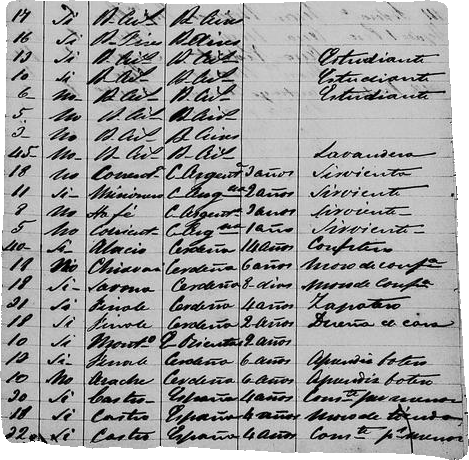 17 Si B. Ais B. Aires
16 Si B. Aires B. Aires
13 Si B. Ais B. Ais Estudiante
10 Si B. Ais B. Ais Estudiante
6 No B. Ais B. Ais Estudiante
5 No B. Ais B. Ais
3 No B. Ais B. Aires
45 No B. Ais B. Ais Lavandera
18 No C. Argent.a 3 años Sirvienta
11 Si Misiones C. Arg.na 2 años Sirviente
3 No Sta fé C. Argent. 3 años Sirviente
5 No C. Arg.na 1 año Sirviente
40 Si Cerdeña 14 años Confitero
18 No Chiavari Cerdeña 6 años Moso de conf.a
18 Si Savona Cerdeña 8 dias Moso de Conf.a
21 Si Finale Cerdeña 4 años Zapatero
18 Si Finale Cerdeña 2 años Dueña de casa
10 Si Mont.o E. Oriental 2 años
12 Si Finale Cerdeña 6 años Aprendis botero
10 No Cerdeña 6 años Aprendis botero
30 Si Castro España 4 años Cons.te por menor
18 Si Castro España 4 años Moso de tienda
22 Si Castro España 4 años Cons.te p.r menor